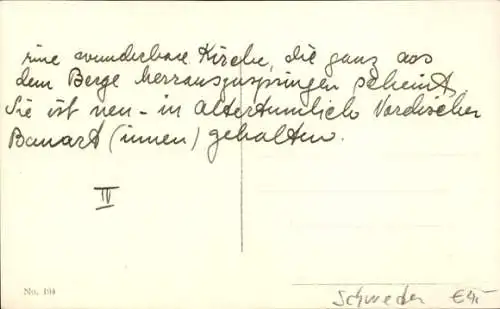 eine wunderbare Kirche, die ganz aos
dem Berge herrauszuspringen scheint,
Sie ist neu - in altertumlich Nordischer
Bauart (innen) gehalten.
IV
No. 194
Schweden €4,-